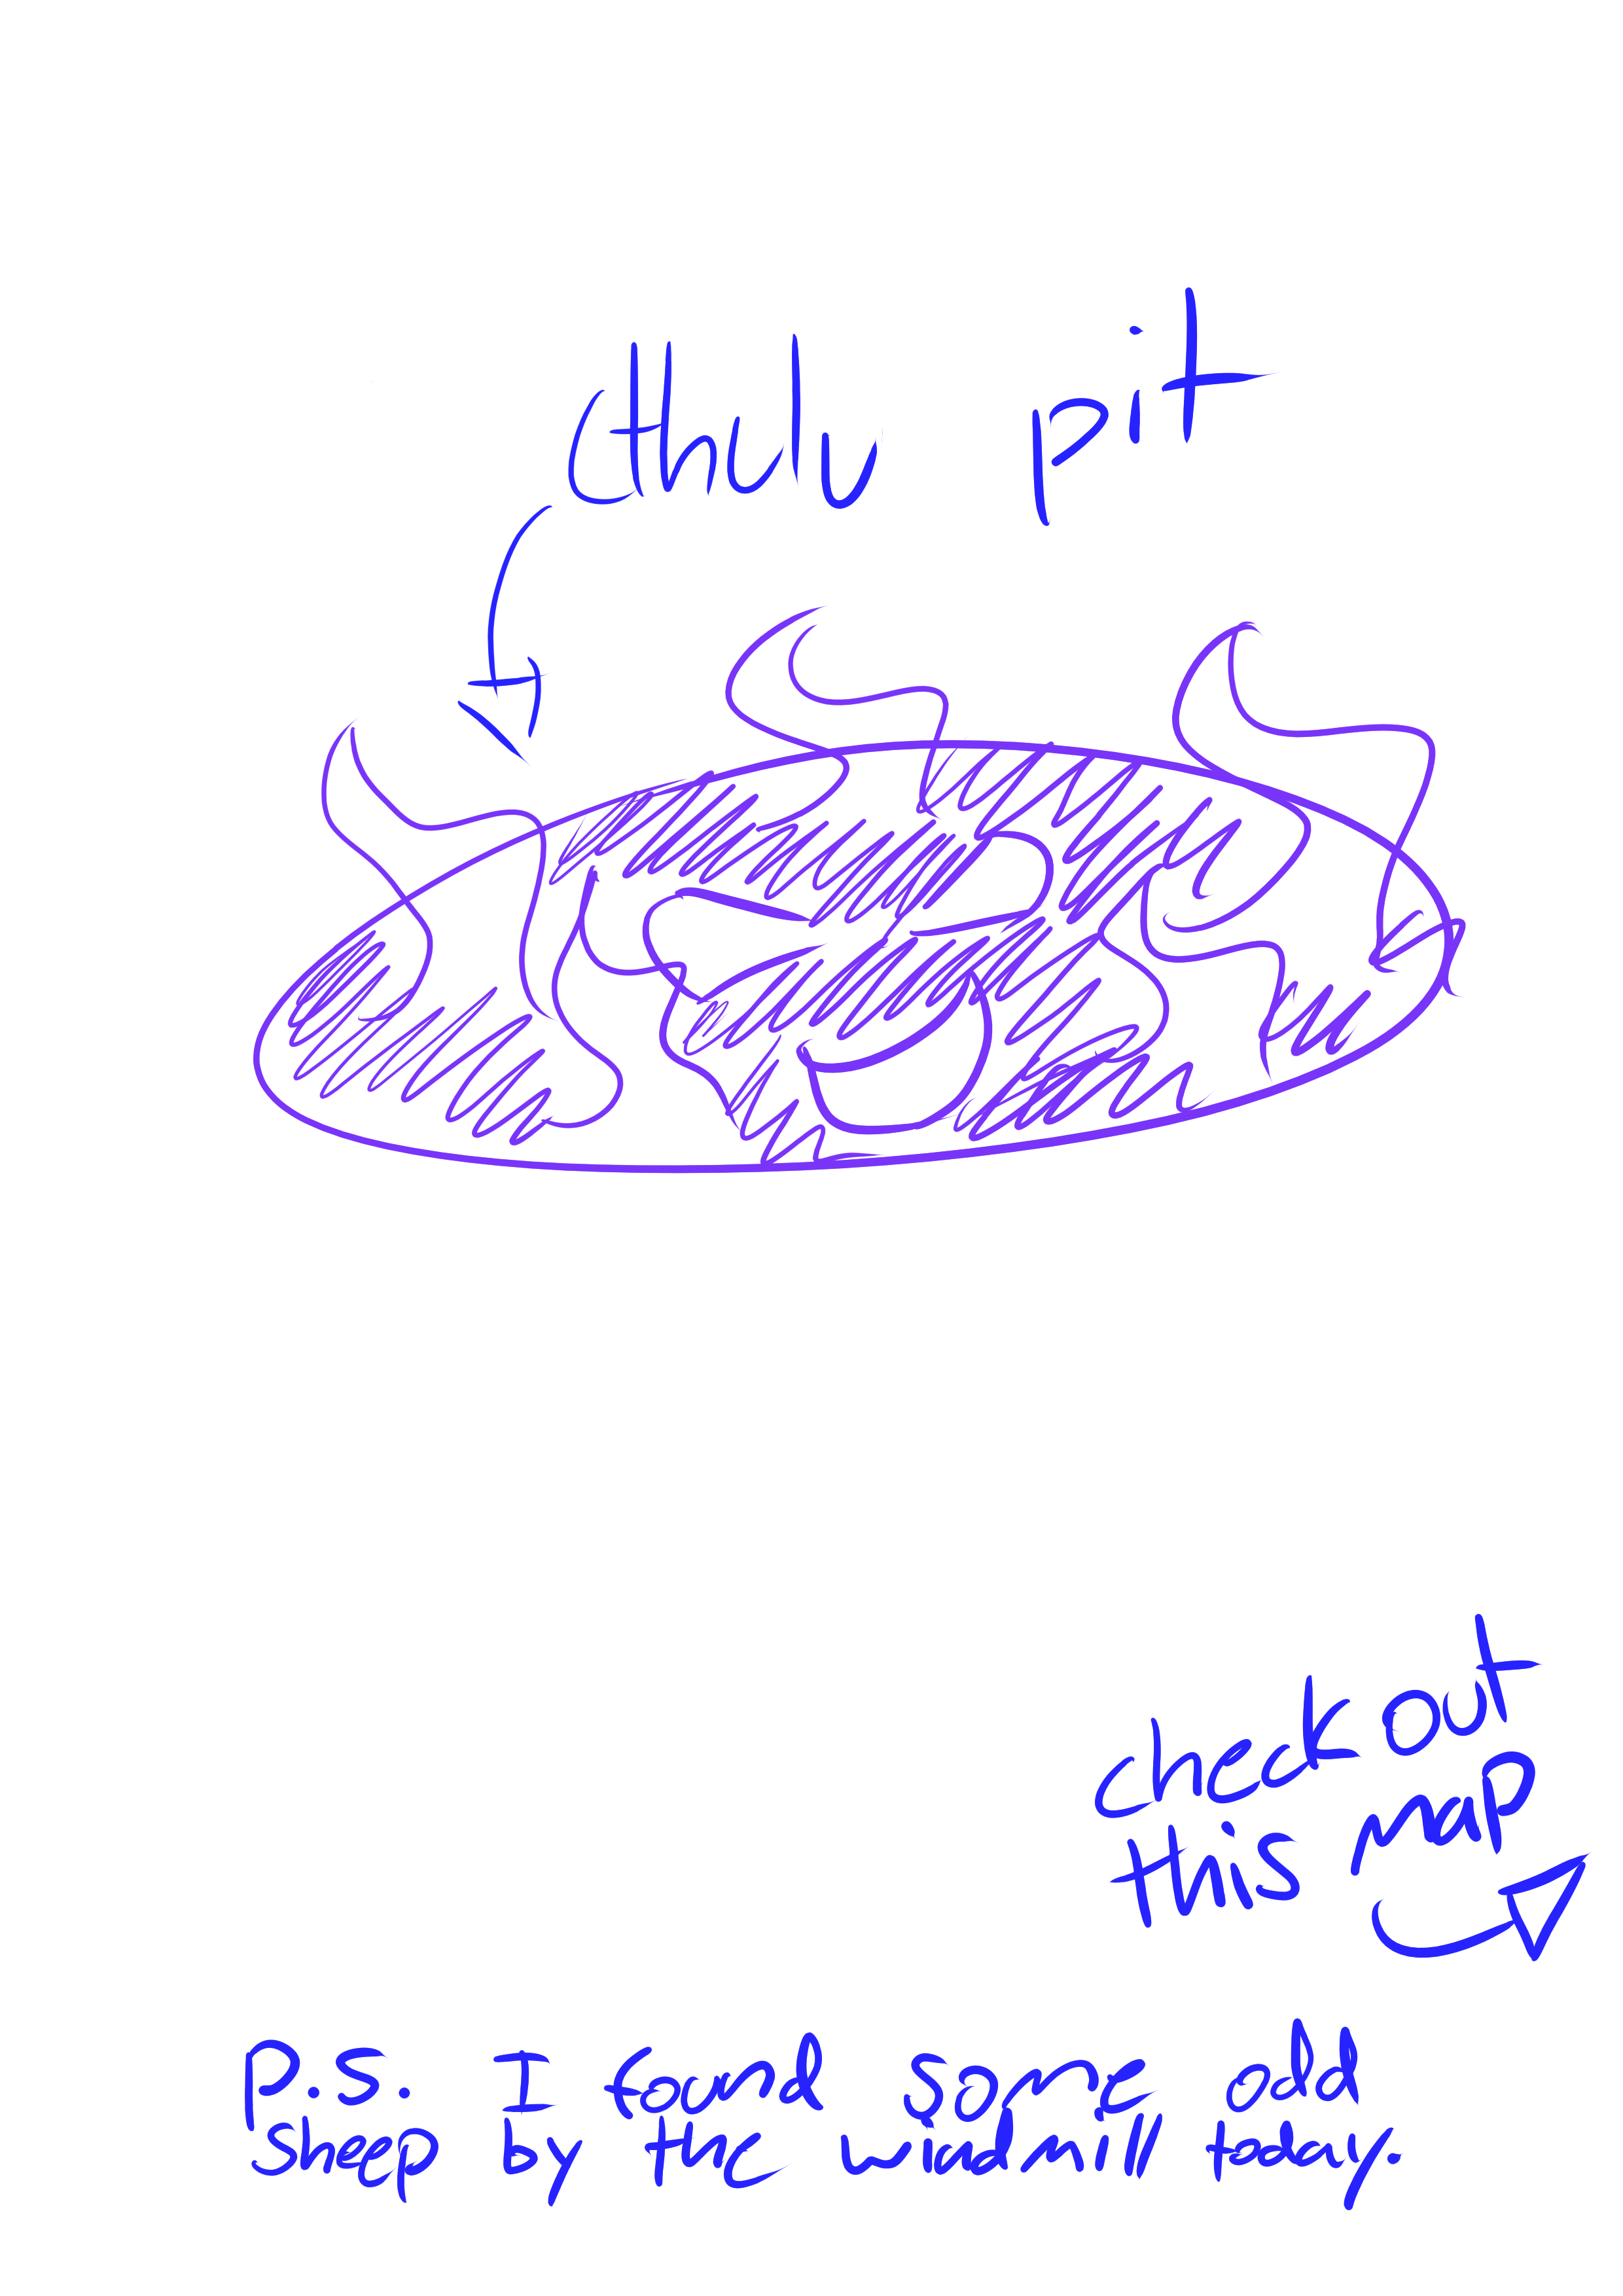 cthulu pit
check out
this map
P.S. I found some odd
sheep by the windmill today.